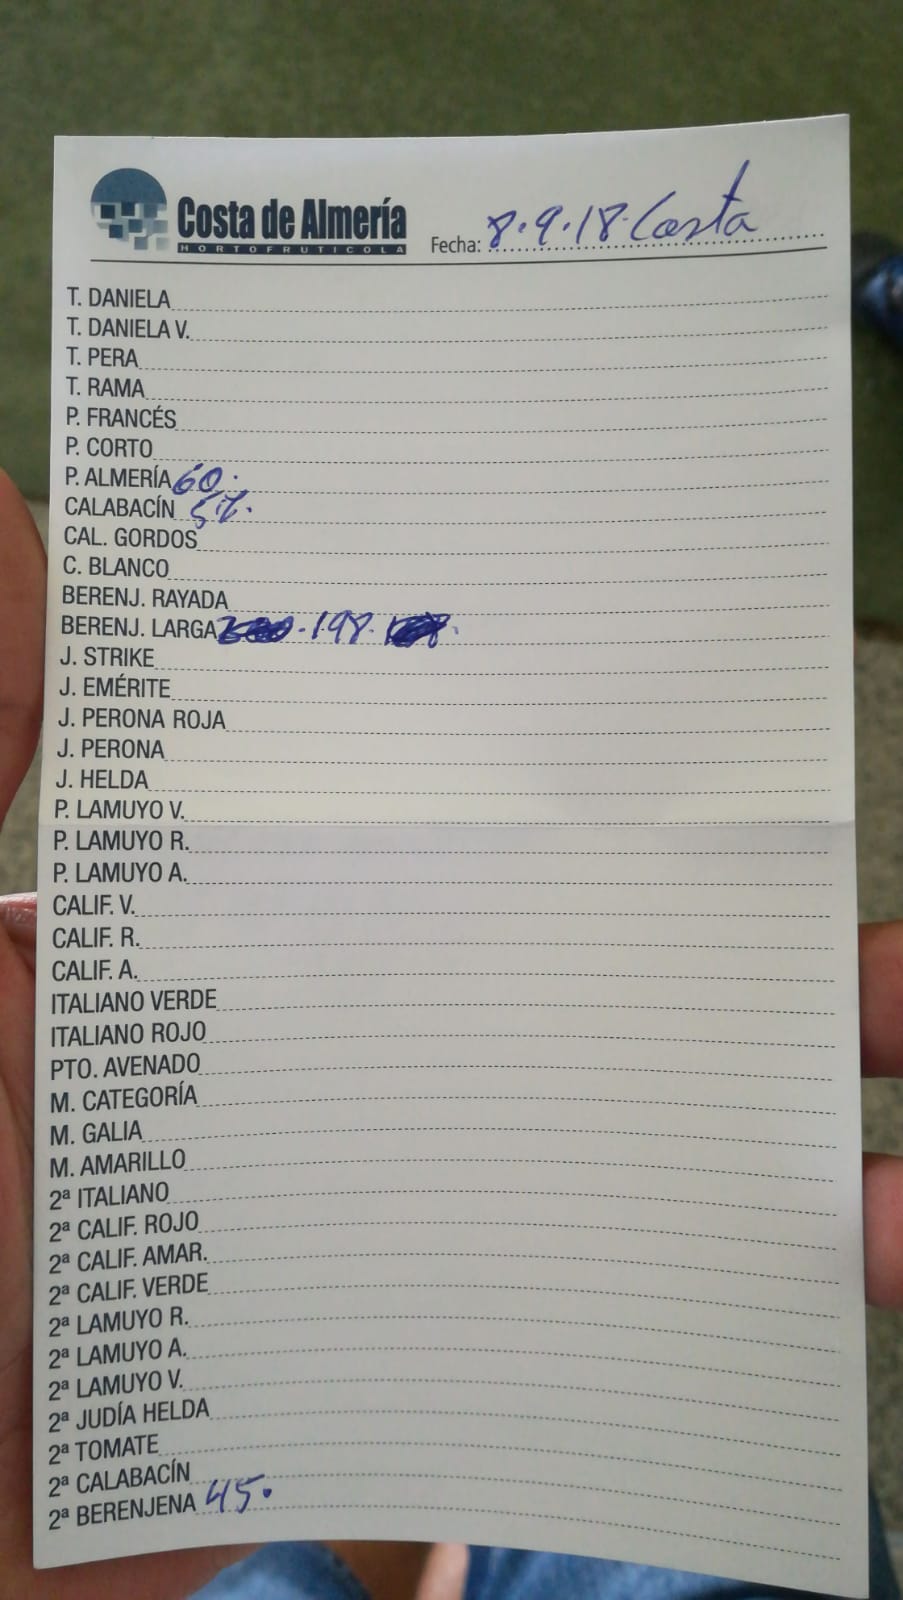 Costa de Almería
HORTOFRUTICOLA
Fecha: 8.9.18. Costa
T. DANIELA
T. DANIELA V.
T. PERA
T. RAMA
P. FRANCÉS
P. CORTO
P. ALMERÍA 60.
CALABACÍN
CAL. GORDOS
C. BLANCO
BERENJ. RAYADA
BERENJ. LARGA . 198.
J. STRIKE
J. EMÉRITE
J. PERONA ROJA
J. PERONA
J. HELDA
P. LAMUYO V.
P. LAMUYO R.
P. LAMUYO A.
CALIF. V.
CALIF. R.
CALIF. A.
ITALIANO VERDE
ITALIANO ROJO
PTO. AVENADO
M. CATEGORÍA
M. GALIA
M. AMARILLO
2ª ITALIANO
2ª CALIF. ROJO
2ª CALIF. AMAR.
2ª CALIF. VERDE
2ª LAMUYO R.
2ª LAMUYO A.
2ª LAMUYO V.
2ª JUDÍA HELDA
2ª TOMATE
2ª CALABACÍN
2ª BERENJENA 45.